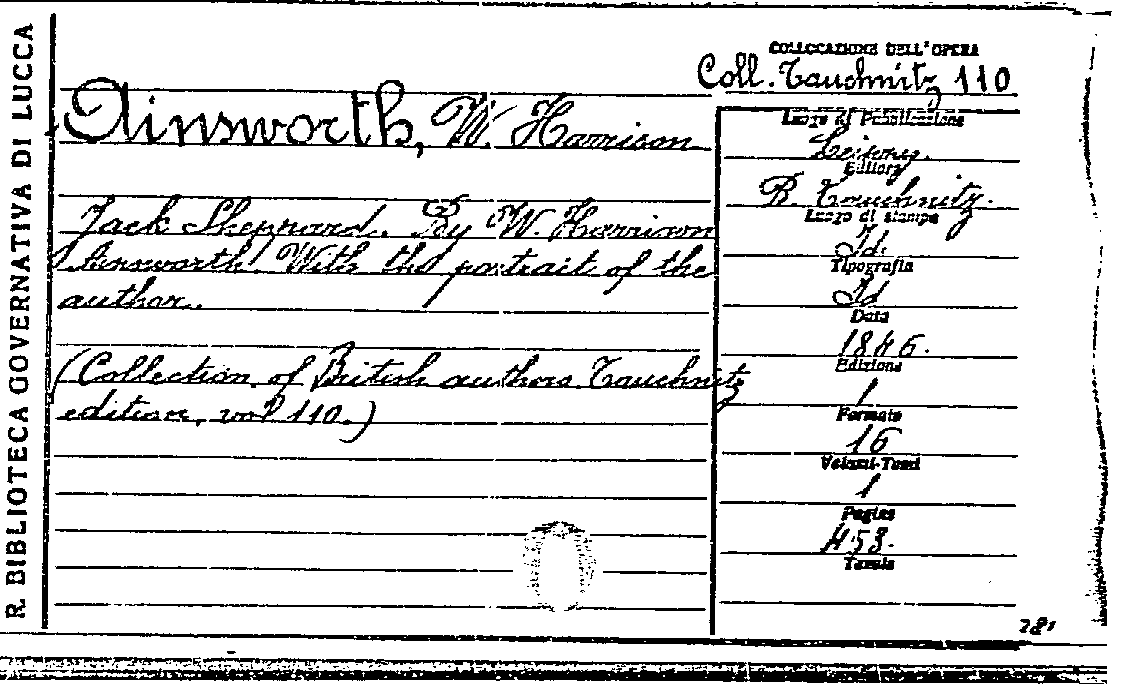 R. BIBLIOTECA GOVERNATIVA DI LUCCA
COLLOCAZIONE DELL'OPERA
Coll. Tauchnitz 110
Ainsworth, W. Harrison
Jack Sheppard. By W. Harrison
Ainsworth. With the portrait of the
author.
(Collection of British authors Tauchnitz
edition, vol 110.)
Luogo di Pubblicazione
Leipzig.
Editore
B. Tauchnitz.
Luogo di stampa
Id.
Tipografia
Id
Data
1846.
Edizione
1
Formato
16
Volumi-Tomi
1
Pagine
453.
Tavole